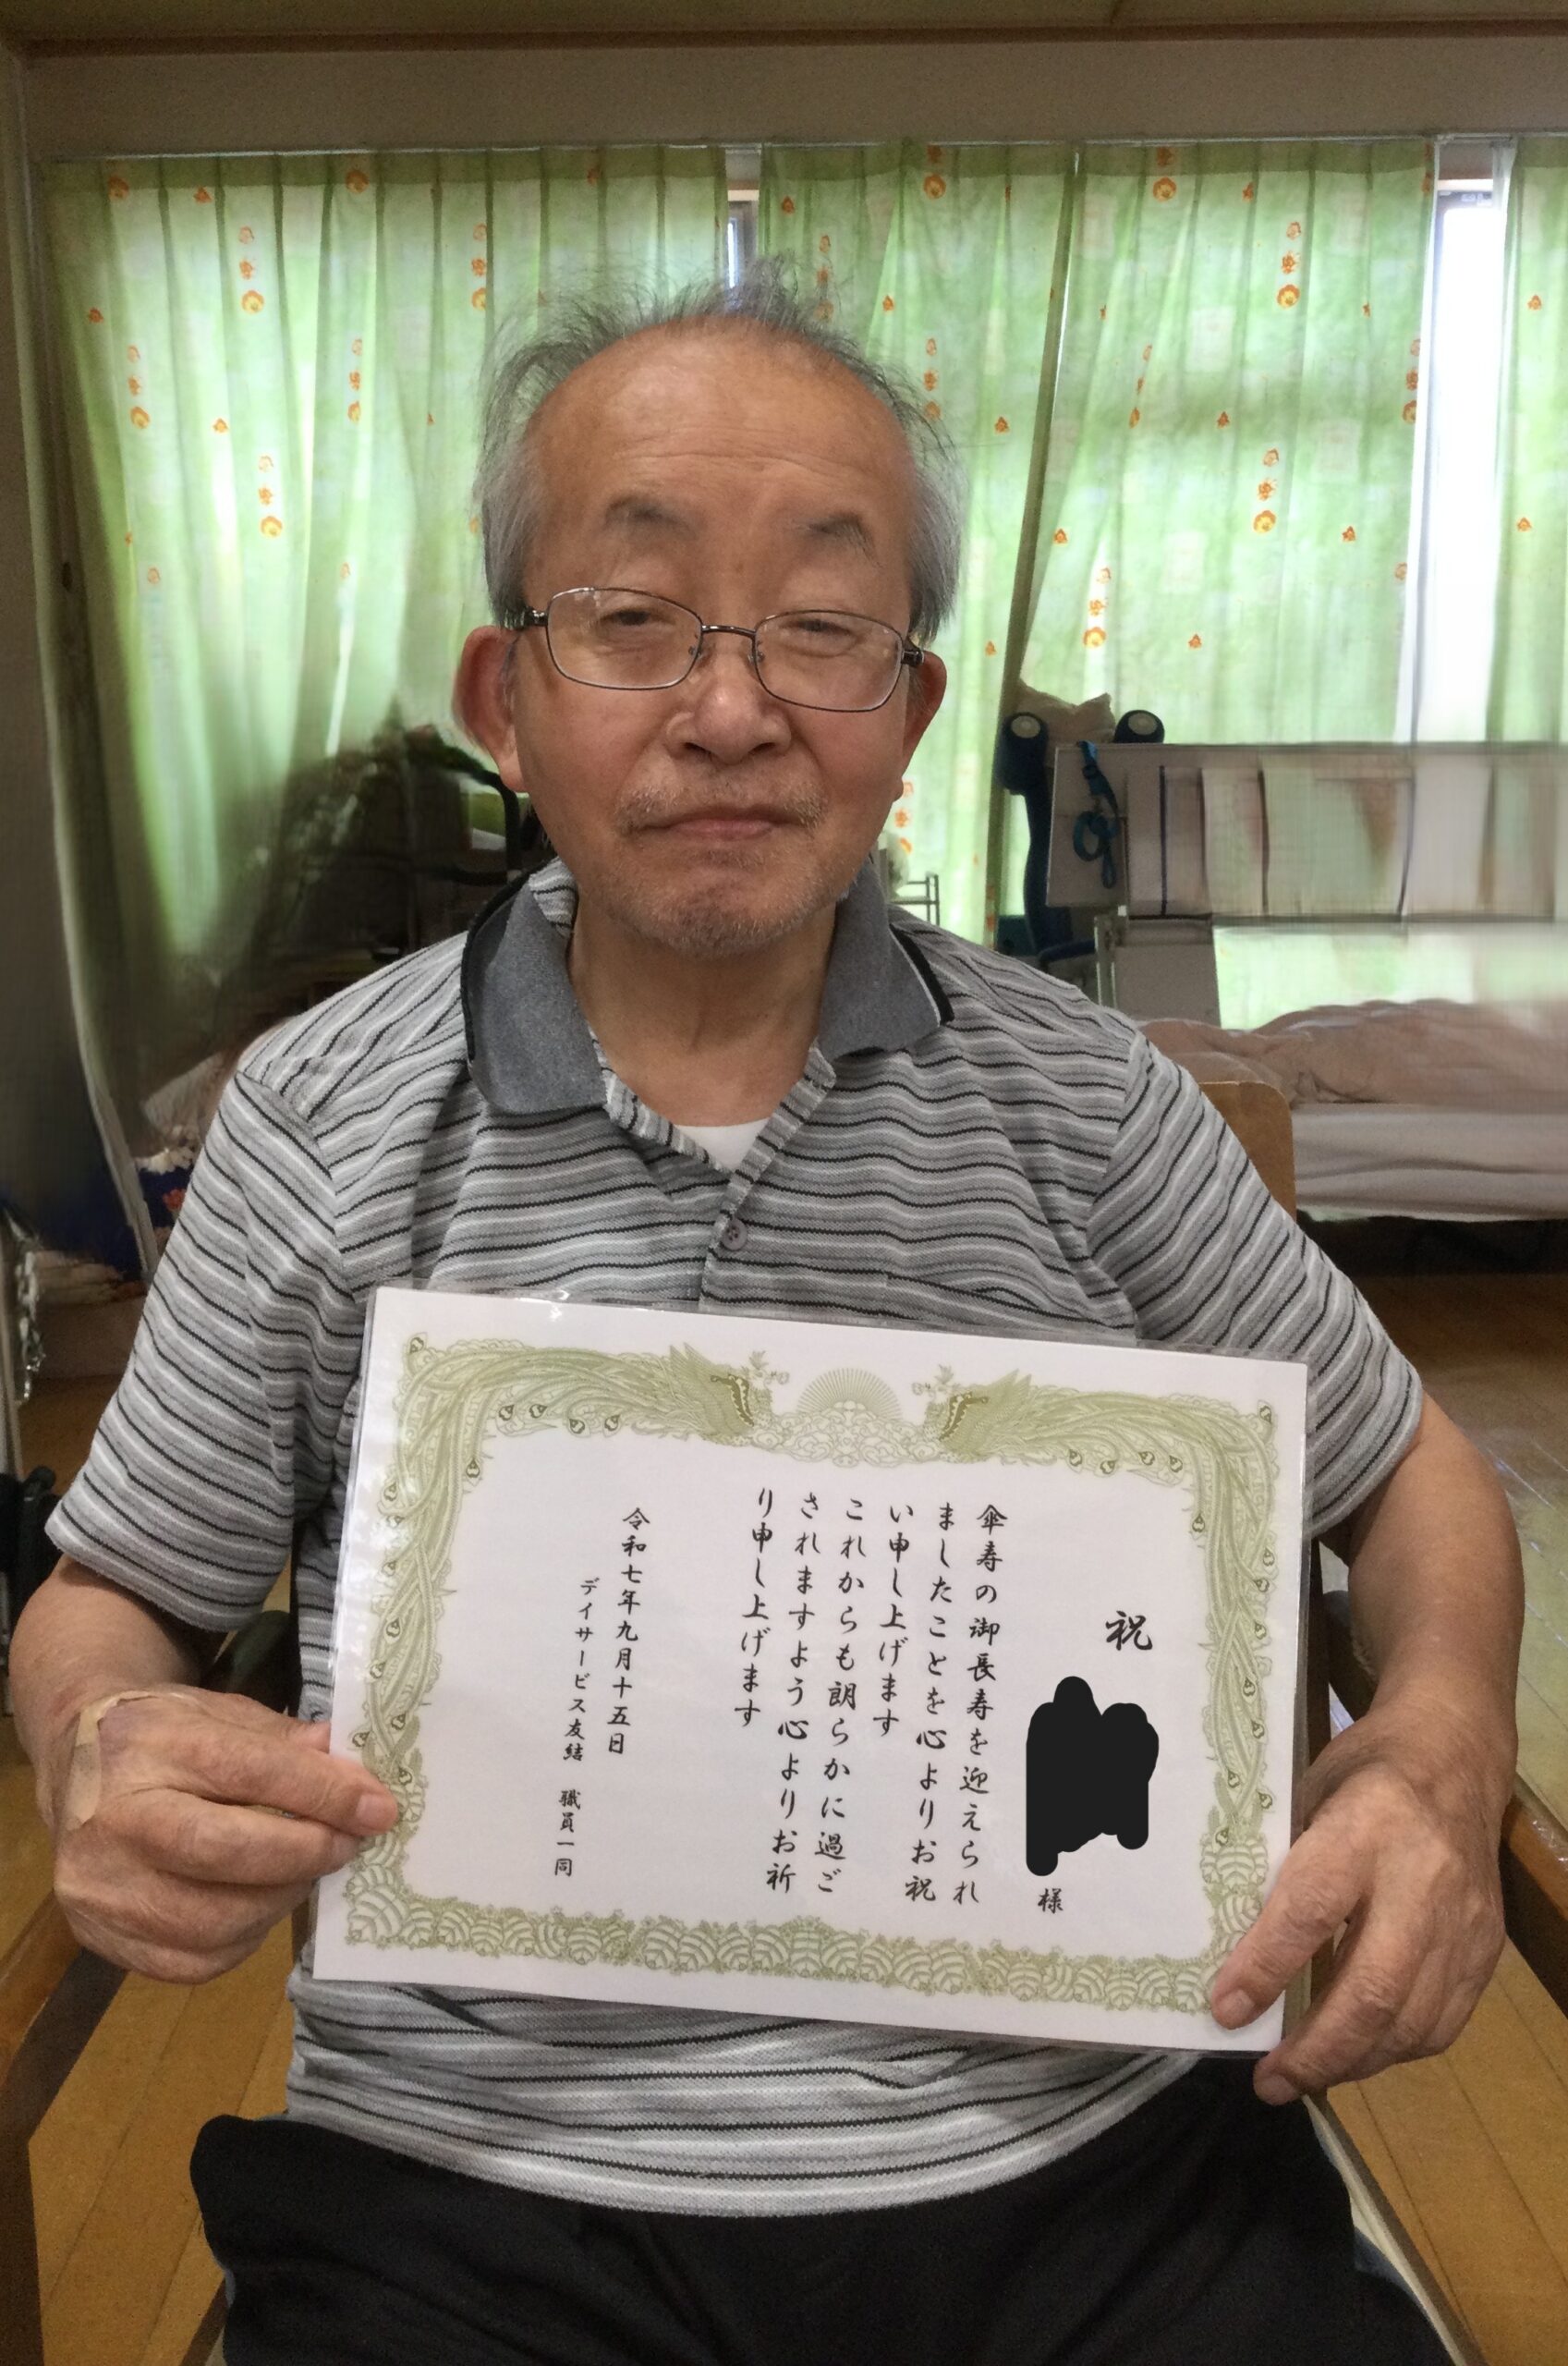 祝
様
傘寿の御長寿を迎えられ
ましたことを心よりお祝
い申し上げます
これからも朗らかに過ご
されますよう心よりお祈
り申し上げます
令和七年九月十五日
デイサービス友結　職員一同